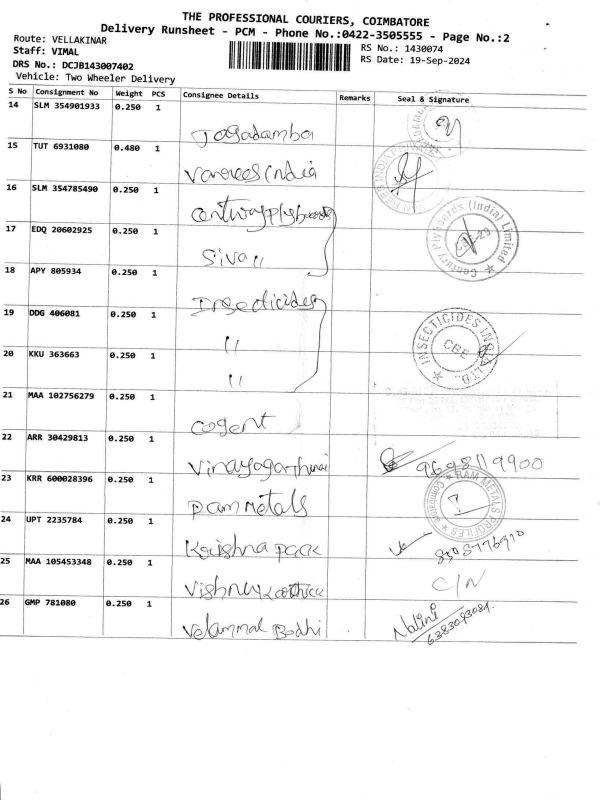 THE PROFESSIONAL COURIERS, COIMBATORE
Delivery Runsheet - PCM - Phone No.:0422-3505555 - Page No.:2
Route: VELLAKINAR
RS No.: 1430074
Staff: VIMAL
RS Date: 19-Sep-2024
DRS No.: DCJB143007402
Vehicle: Two Wheeler Delivery
S No Consignment No Weight PCS Consignee Details Remarks Seal & Signature
14 SLM 354901933 0.250 1
Jagadamba
15 TUT 6931080 0.480 1
Vanrees india
16 SLM 354785490 0.250 1
Century plyboards
Century Plyboards (India) Limited
CBE-29
17 EDQ 20602925 0.250 1
Siva "
18 APY 805934 0.250 1
Insecticides
19 DDG 406081 0.250 1
"
INSECTICIDES INDIA LTD.
CBE
20 KKU 363663 0.250 1
"
21 MAA 102756279 0.250 1
Cogent
22 ARR 30429813 0.250 1
9698119900
23 KRR 600028396 0.250 1
Ram Metals
RAM METALS PROFILES
Coimbatore
24 UPT 2235784 0.250 1
Krishna pack
25 MAA 105453348 0.250 1
C/N
26 GMP 781080 0.250 1
Velammal Bodhi
Nalini
6383093084